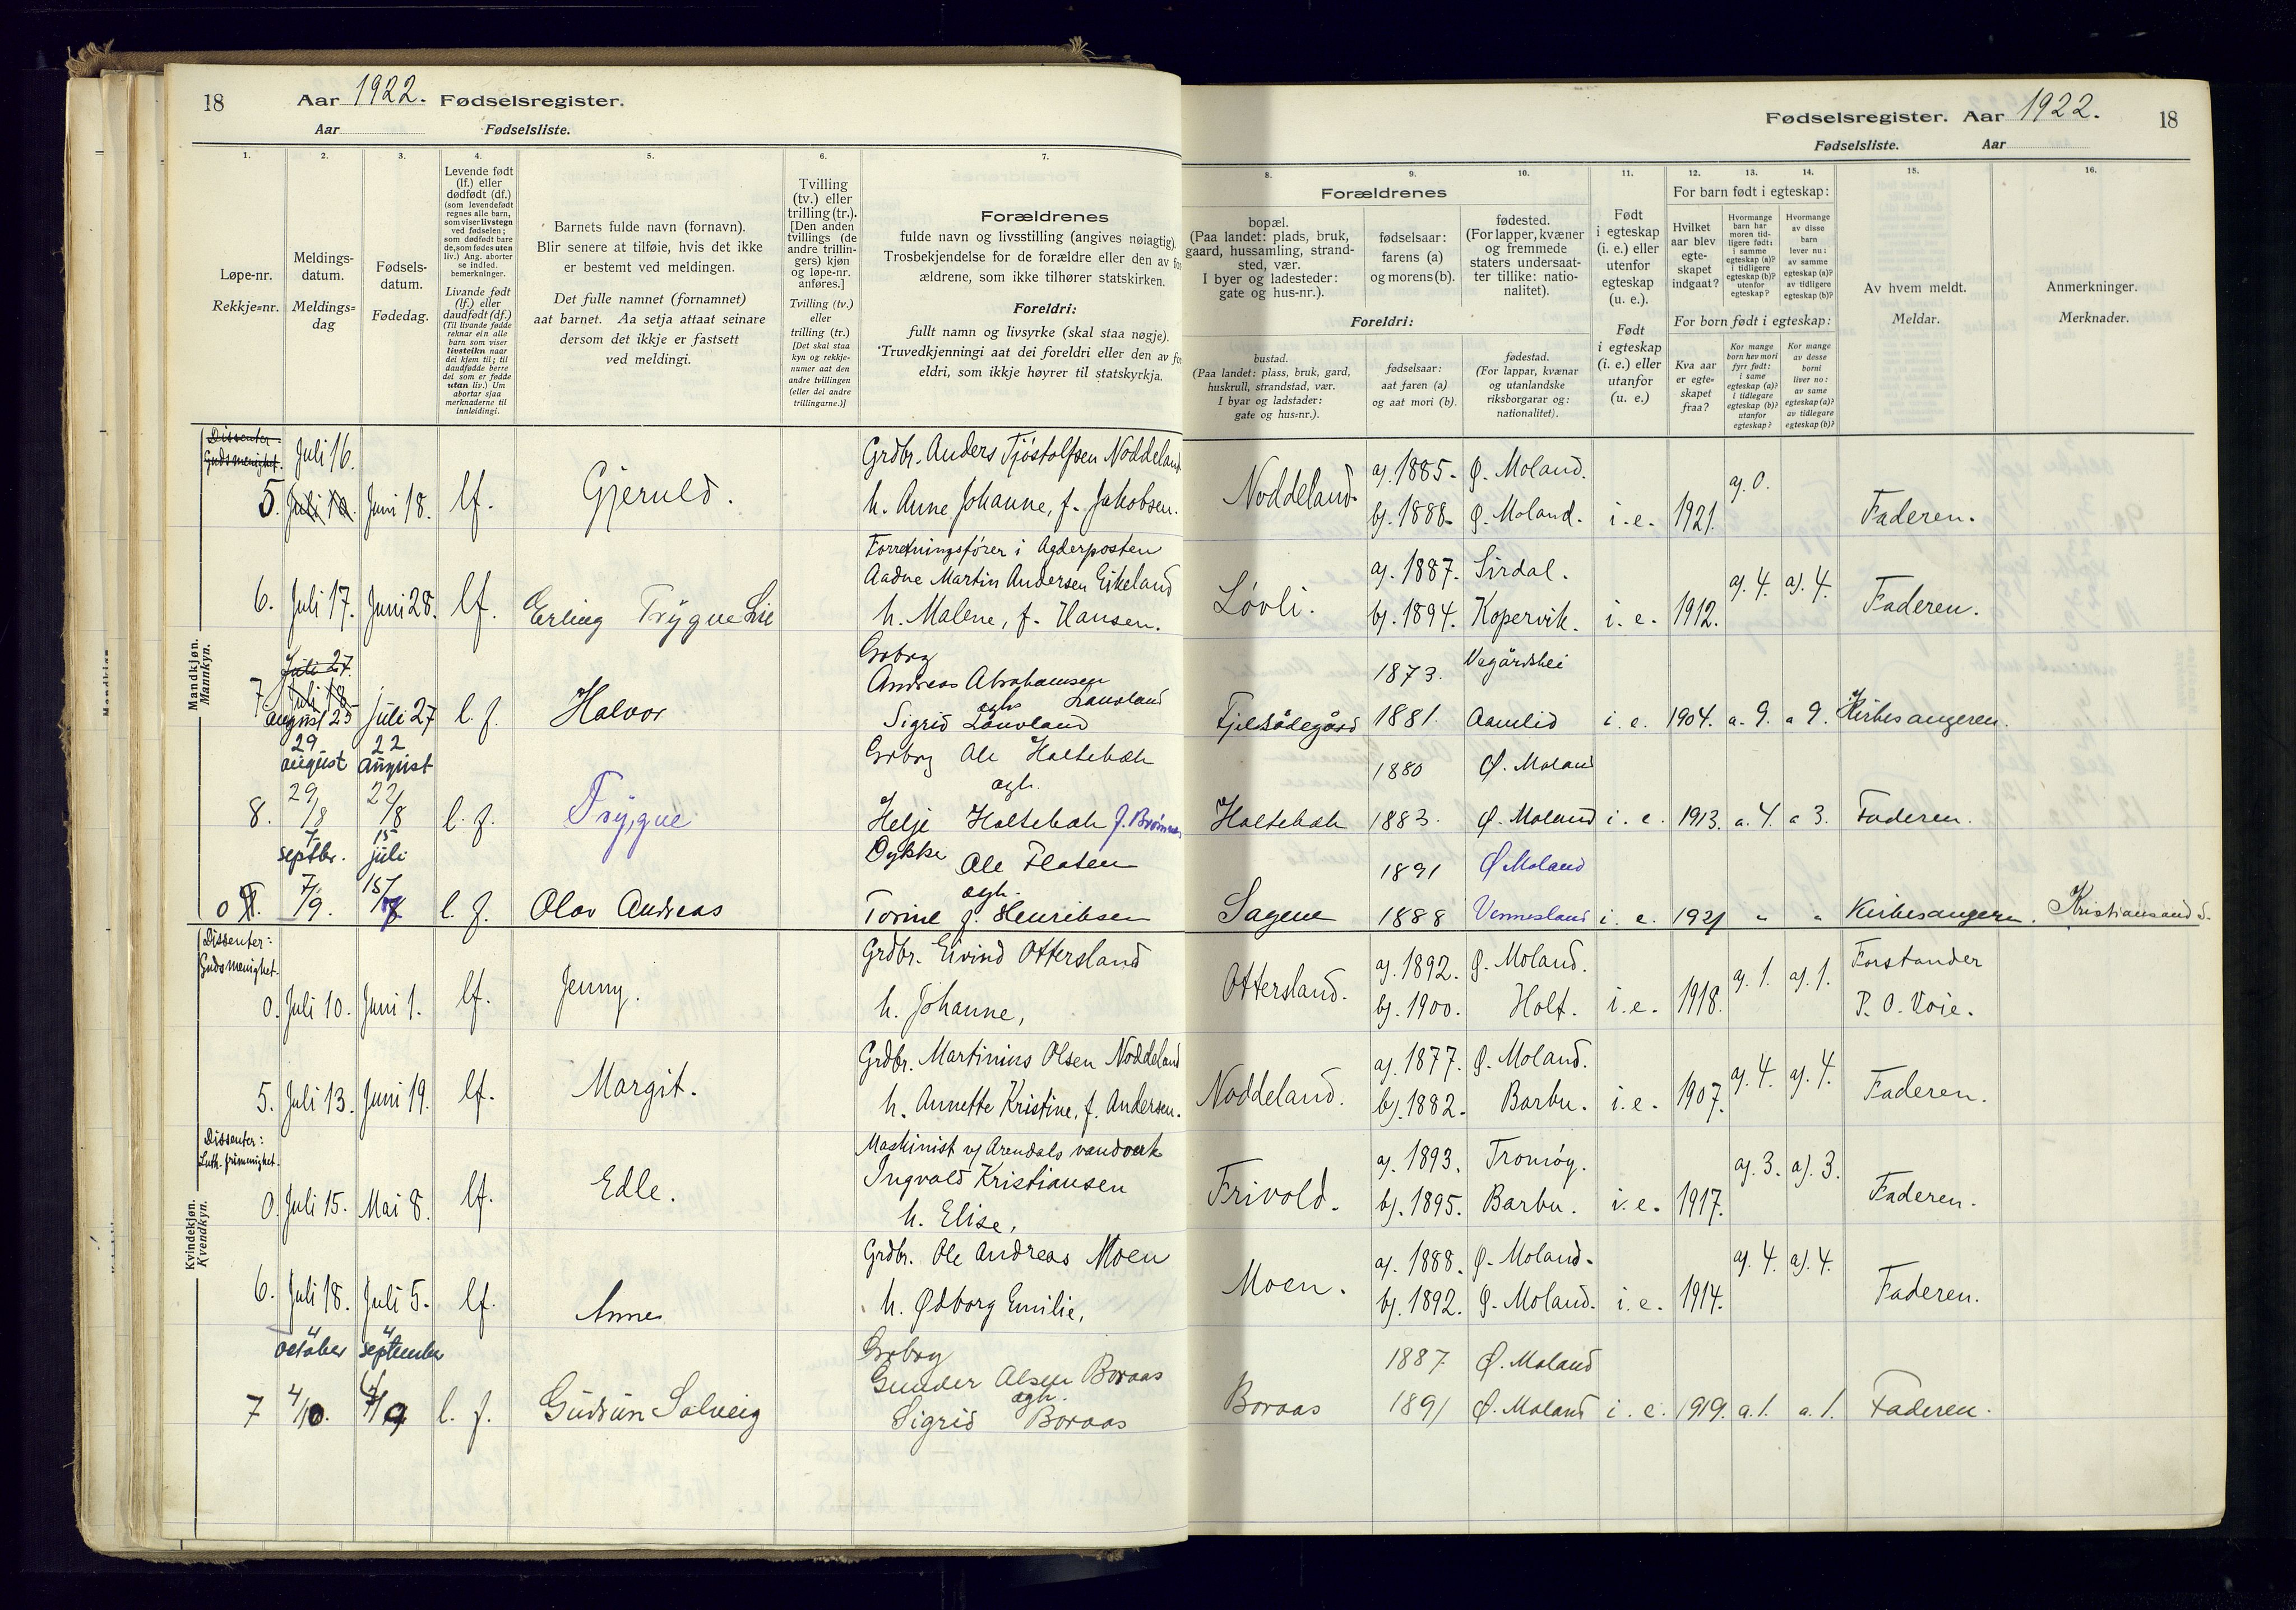 18
Aar 1922. Fødselsregister.
Aar Fødselsliste.
Fødselsregister. Aar 1922.
18
Fødselsliste. Aar
1. 2. 3. 4. 5. 6. 7.
Løpe-nr.
Rekkje=nr.
Meldings-
datum.
Meldings=
dag
Fødsels-
datum.
Fødedag.
Levende født
(lf.) eller
dødfødt (df.)
(som levendefødt
regnes alle barn,
som viser livstegn
ved fødselen;
som dødfødt bare
de, som fødes uten
liv.) Ang. aborter
se indled.
bemerkninger.
Livande født
(lf.) eller
daudfødt (df.)
(Til livande fødde
reknar ein alle
barn som viser
livsteikn naar
dei kjem til; til
daudfødde berre
dei som er fødde
utan liv.) Um
abortar sjaa
merknaderne til
innleidingi.
Barnets fulde navn (fornavn).
Blir senere at tilføie, hvis det ikke
er bestemt ved meldingen.
Det fulle namnet (fornamnet)
aat barnet. Aa setja attaat seinare
dersom det ikkje er fastsett
ved meldingi.
Tvilling
(tv.) eller
trilling (tr.).
[Den anden
tvillings (de
andre trillin-
gers) kjøn
og løpe-nr.
anføres.]
Tvilling (tv.)
eller
trilling (tr.)
[Det skal staa
kyn og rekkje-
numer aat den
andre tvillingen
(eller dei andre
trillingarne.)]
Forældrenes
fulde navn og livsstilling (angives nøiagtig).
Trosbekjendelse for de forældre eller den av
ældrene, som ikke tilhører statskirken.
Foreldri:
fullt namn og livsyrke (skal staa nøgje).
Truvedkjenningi aat dei foreldri eller den av
eldri, som ikkje høyrer til statskyrkja.
8. 9. 10. 11. 12. 13. 14. 15. 16.
Forældrenes
bopæl.
(Paa landet: plads, bruk,
gaard, hussamling, strand-
sted, vær.
I byer og ladesteder:
gate og hus-nr.).
fødselsaar:
farens (a)
og morens (b).
fødested.
(For lapper, kvæner
og fremmede
staters undersaat-
ter tillike: natio-
nalitet).
Foreldri:
bustad.
(Paa landet: plass, bruk, gard,
huskrull, strandstad, vær.
I byar og ladstader:
gate og hus=nr.).
fødselsaar:
aat faren (a)
og aat mori (b).
fødestad.
(For lappar, kvænar
og utanlandske
riksborgarar og:
nationalitet).
Født
i egteskap
(i. e.) eller
utenfor
egteskap
(u. e.).
Født
i egteskap
(i. e.) eller
utanfor
(u. e.)
For barn født i egteskap:
Hvilket
aar blev
egte-
skapet
indgaat?
Hvormange
barn har
moren tid-
ligere født:
i samme
egteskap (a)?
i tidligere
egteskap (b)?
utenfor
egteskap?
Hvormange
av disse
barn
lever nu:
av samme
egteskap (a)?
av tidligere
egteskap (b)?
For born født i egteskap:
Kva aar
er egte=
skapet
fraa?
Kor mange
born hev mori
fyrr født:
i same
egteskap (a)?
i tidlegare
egteskap (b)?
utanfor
egteskap?
Kor mange
av desse
borni
liver no:
av same
egteskap (a)?
av tidlegare
egteskap (b)?
Av hvem meldt.
Meldar.
Anmerkninger.
Merknader.
Mandkjøn.
Mannkyn.
Dissenter-
Gudsmenighet.
Juli 16.
5. Juli 10. Juni 18. lf. Gjeruld.
Grdbr. Anders Tjøstolfsen Noddeland
h. Anne Johanne, f. Jakobsen.
Noddeland. a). 1885. Ø. Moland.
b). 1888. Ø. Moland. i. e. 1921. a). 0. Faderen.
Forretningsfører i Agderposten
Aadne Martin Andersen Eikeland
6. Juli 17. Juni 28. lf. Erling Trygve
h. Malene, f. Hansen.
Løvli. a). 1887. Sirdal.
b). 1894. Kopervik. i. e. 1912. a). 4. a). 4. Faderen.
Juli 27.
7 Juli 18
august 25 juli 27 l. f. Halvor
Andreas Abrahamsen
Lauvland
ogh
Sigrid Lauvland
1873. Vegårdshei
Fjeldsødegård 1881. Aamlid i. e. 1904. a. 9. a 9. Kirkesangeren.
29 august 22 august
8. 29/8 22/8 l. f. Trygve
Ole Holtebæk
ogh.
Helje Holtebæk
1880 Ø. Moland
Holtebæk 1883. Ø. Moland i. e. 1913. a. 4. a 3. Faderen.
7 septbr. 15 juli
0 7/9. l. f. Olav Andreas
Ole Flaten
ogh.
Torine f. Henriksen
1891 Ø Moland
Sagene 1888 Vennesland i. e. 1921 " " Kirkesangeren. Kristiansand S.
Kvindekjøn.
Kvendkyn.
Dissenter:
Gudsmenighet.
0. Juli 10. Juni 1. lf. Jenny.
Grdbr. Eivind Ottersland
h. Johanne,
Ottersland. a). 1892. Ø. Moland.
b). 1900. Holt. i. e. 1918. a). 1. a). 1. Forstander
P. O. Voie.
5. Juli 13. Juni 19. lf. Margit.
Grdbr. Martinius Olsen Noddeland
h. Annette Kristine, f. Andersen.
Noddeland. a). 1877. Ø. Moland.
b). 1882. Barbu. i. e. 1907. a). 4. a). 4. Faderen.
Dissenter:
Luth. frimenighet.
0. Juli 15. Mai 8. lf. Edle.
Maskinist v/ Arendals vandverk
Ingvald Kristiansen
h. Elise,
Frivold. a). 1893. Tromøy.
b). 1895. Barbu. i. e. 1917. a). 3. a). 3. Faderen.
6. Juli 18. Juli 5. lf. Anne
Grdbr. Ole Andreas Moen
h. Ødborg Emilie,
Moen. a). 1888. Ø. Moland.
b). 1892. Ø. Moland. i. e. 1914. a). 4. a). 4. Faderen.
4 october 4 september
7 4/10. 4/9 l. f. Gudrun Solveig
Gunder Olsen Boraas
ogh.
Sigrid Boraas
1887. Ø. Moland
Boraas 1891 Ø. Moland i. e. 1919. a. 1. a. 1. Faderen.